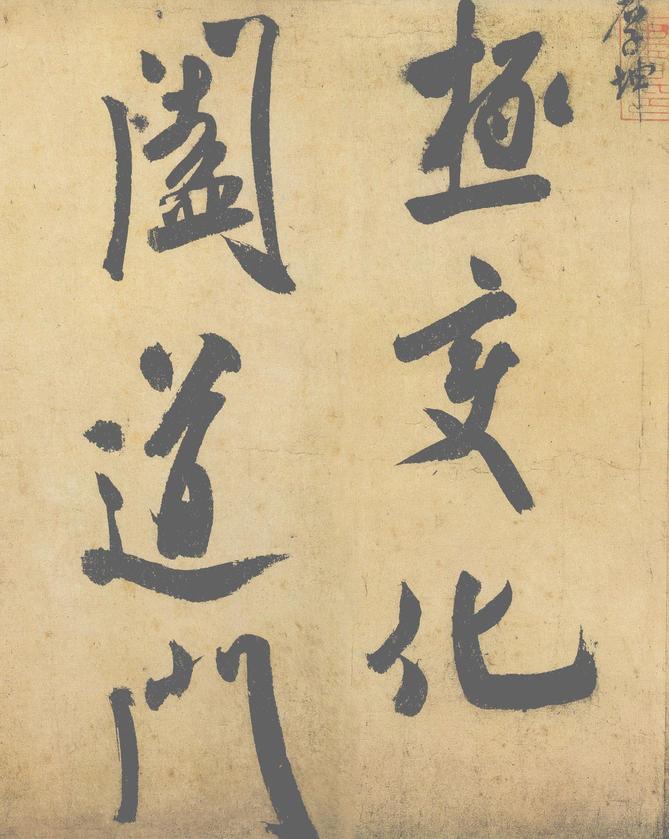 極變化
闔道門